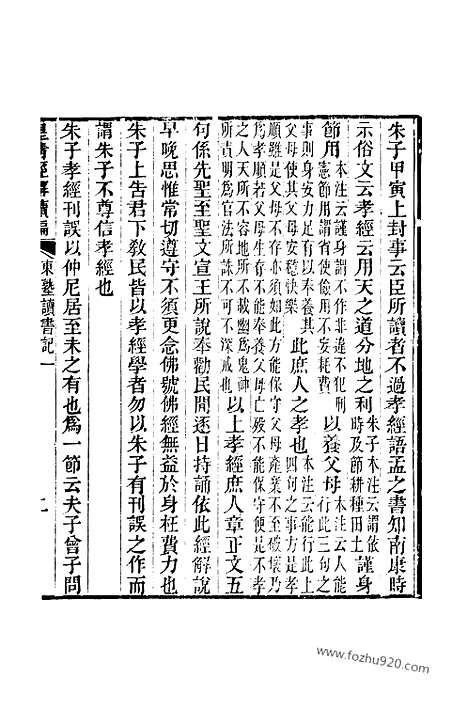 朱子甲寅上封事云臣所讀者不過孝經語孟之書知南康時
示俗文云孝經云用天之道分地之利朱子本注云謂依時及節耕種田土謹身
節用本注云謹身謂不作非違不犯刑憲節用謂省使儉用不妄耗費以養父母本注云人能行此三句之
事則身安力足有以奉養其父母使其父母安穩快樂此庶人之孝也本注云能行此上四句之事方是孝
順雖是父母不存亦須如此方能保守父母產業不至破壞乃爲孝順若父母生不能奉養父母亡歿不能保守便是不孝
之人天所不容地所不載幽爲鬼神所責明爲官法所誅不可不深戒也以上孝經庶人章正文五
句係先聖至聖文宣王所說奉勸民間逐日持誦依此經解說
早晚思惟常切遵守不須更念佛號佛經無益於身枉費力也
朱子上告君下教民皆以孝經學者勿以朱子有刊誤之作而
謂朱子不尊信孝經也
朱子孝經刊誤以仲尼居至未之有也爲一節云夫子曾子問
皇清經解續編
東塾讀書記一
www.fozhu920.com